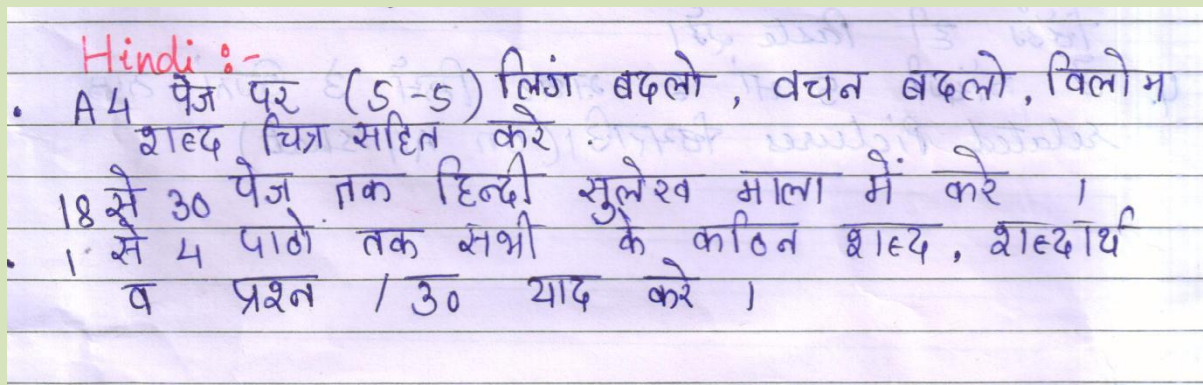 Hindi :-
• A4 पेज पर (5-5) लिंग बदलो, वचन बदलो, विलोम
शब्द चित्र सहित करे.
18 से 30 पेज तक हिन्दी सुलेख माला में करे ।
• 1 से 4 पाठो तक सभी के कठिन शब्द, शब्दार्थ
व प्रश्न / उ० याद करे ।